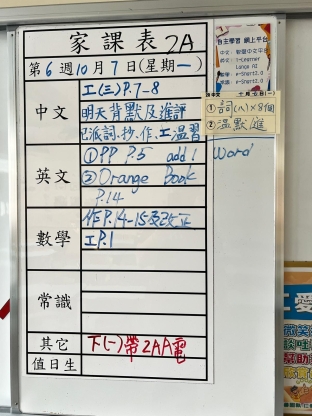 家課表 2A
第6週10月7日(星期一)
中文
工(三)P.7-8
明天背默及進評
已派詞.抄.作.工溫習
英文
① PP P.5 add 1 Word
② Orange Book
P.14
數學
作P.14-15及改正
工P.1
常識
其它
下(一)帶2AA電
值日生
自主學習 網上平台
① 詞(八)×8個
② 溫默進